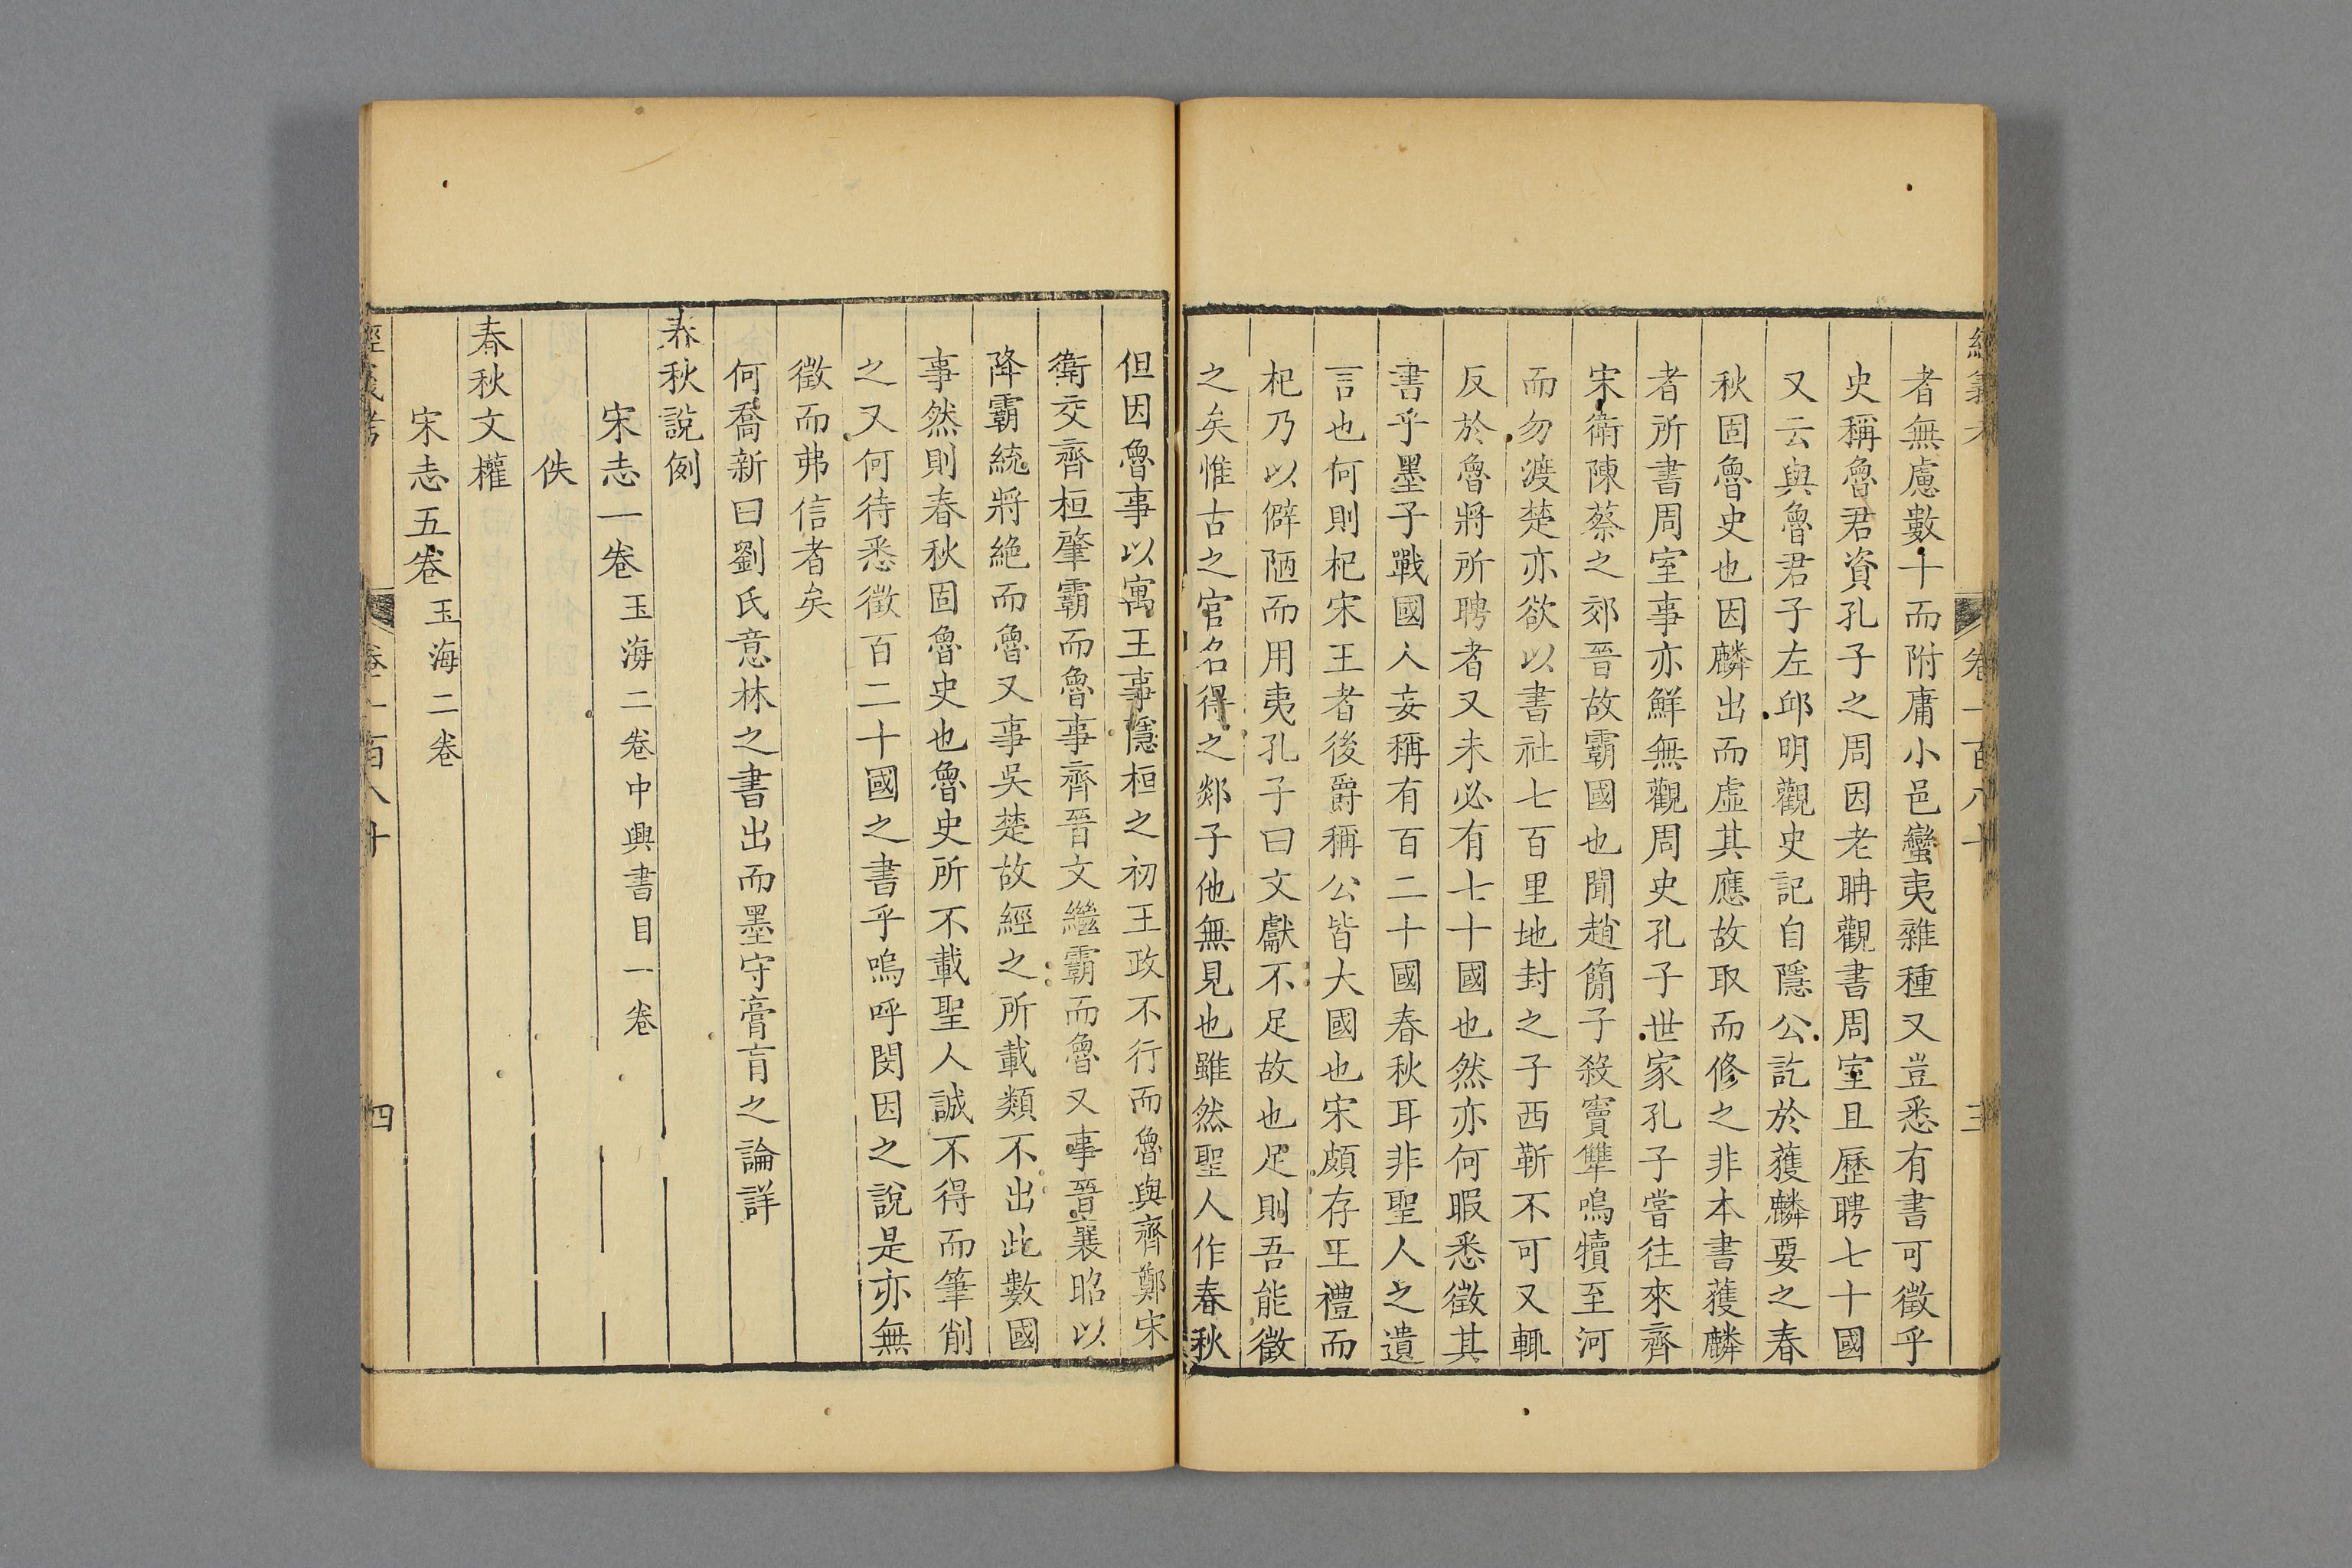 經義考 卷一百八十 三
者無慮數十而附庸小邑蠻夷雜種又豈悉有書可徵乎
史稱魯君資孔子之周因老聃觀書周室且歷聘七十國
又云與魯君子左邱明觀史記自隱公訖於獲麟要之春
秋固魯史也因麟出而虛其應故取而修之非本書獲麟
者所書周室事亦鮮無觀周史孔子世家孔子嘗往來齊
宋衛陳蔡之郊晉故霸國也聞趙簡子殺竇犨鳴犢至河
而勿渡楚亦欲以書社七百里地封之子西靳不可又輒
反於魯將所聘者又未必有七十國也然亦何暇悉徵其
書乎墨子戰國人妄稱有百二十國春秋耳非聖人之遺
言也何則杞宋王者後爵稱公皆大國也宋頗存王禮而
杞乃以僻陋而用夷孔子曰文獻不足故也足則吾能徵
之矣惟古之官名得之郯子他無見也雖然聖人作春秋
但因魯事以寓王事隱桓之初王政不行而魯與齊鄭宋
衛交齊桓肇霸而魯事齊晉文繼霸而魯又事晉襄昭以
降霸統將絕而魯又事吳楚故經之所載類不出此數國
事然則春秋固魯史也魯史所不載聖人誠不得而筆削
之又何待悉徵百二十國之書乎嗚呼閔因之說是亦無
徵而弗信者矣
何喬新曰劉氏意林之書出而墨守膏肓之論詳
春秋說例
宋志一卷玉海二卷中興書目一卷
佚
春秋文權
宋志五卷玉海二卷
經義考 卷一百八十 四